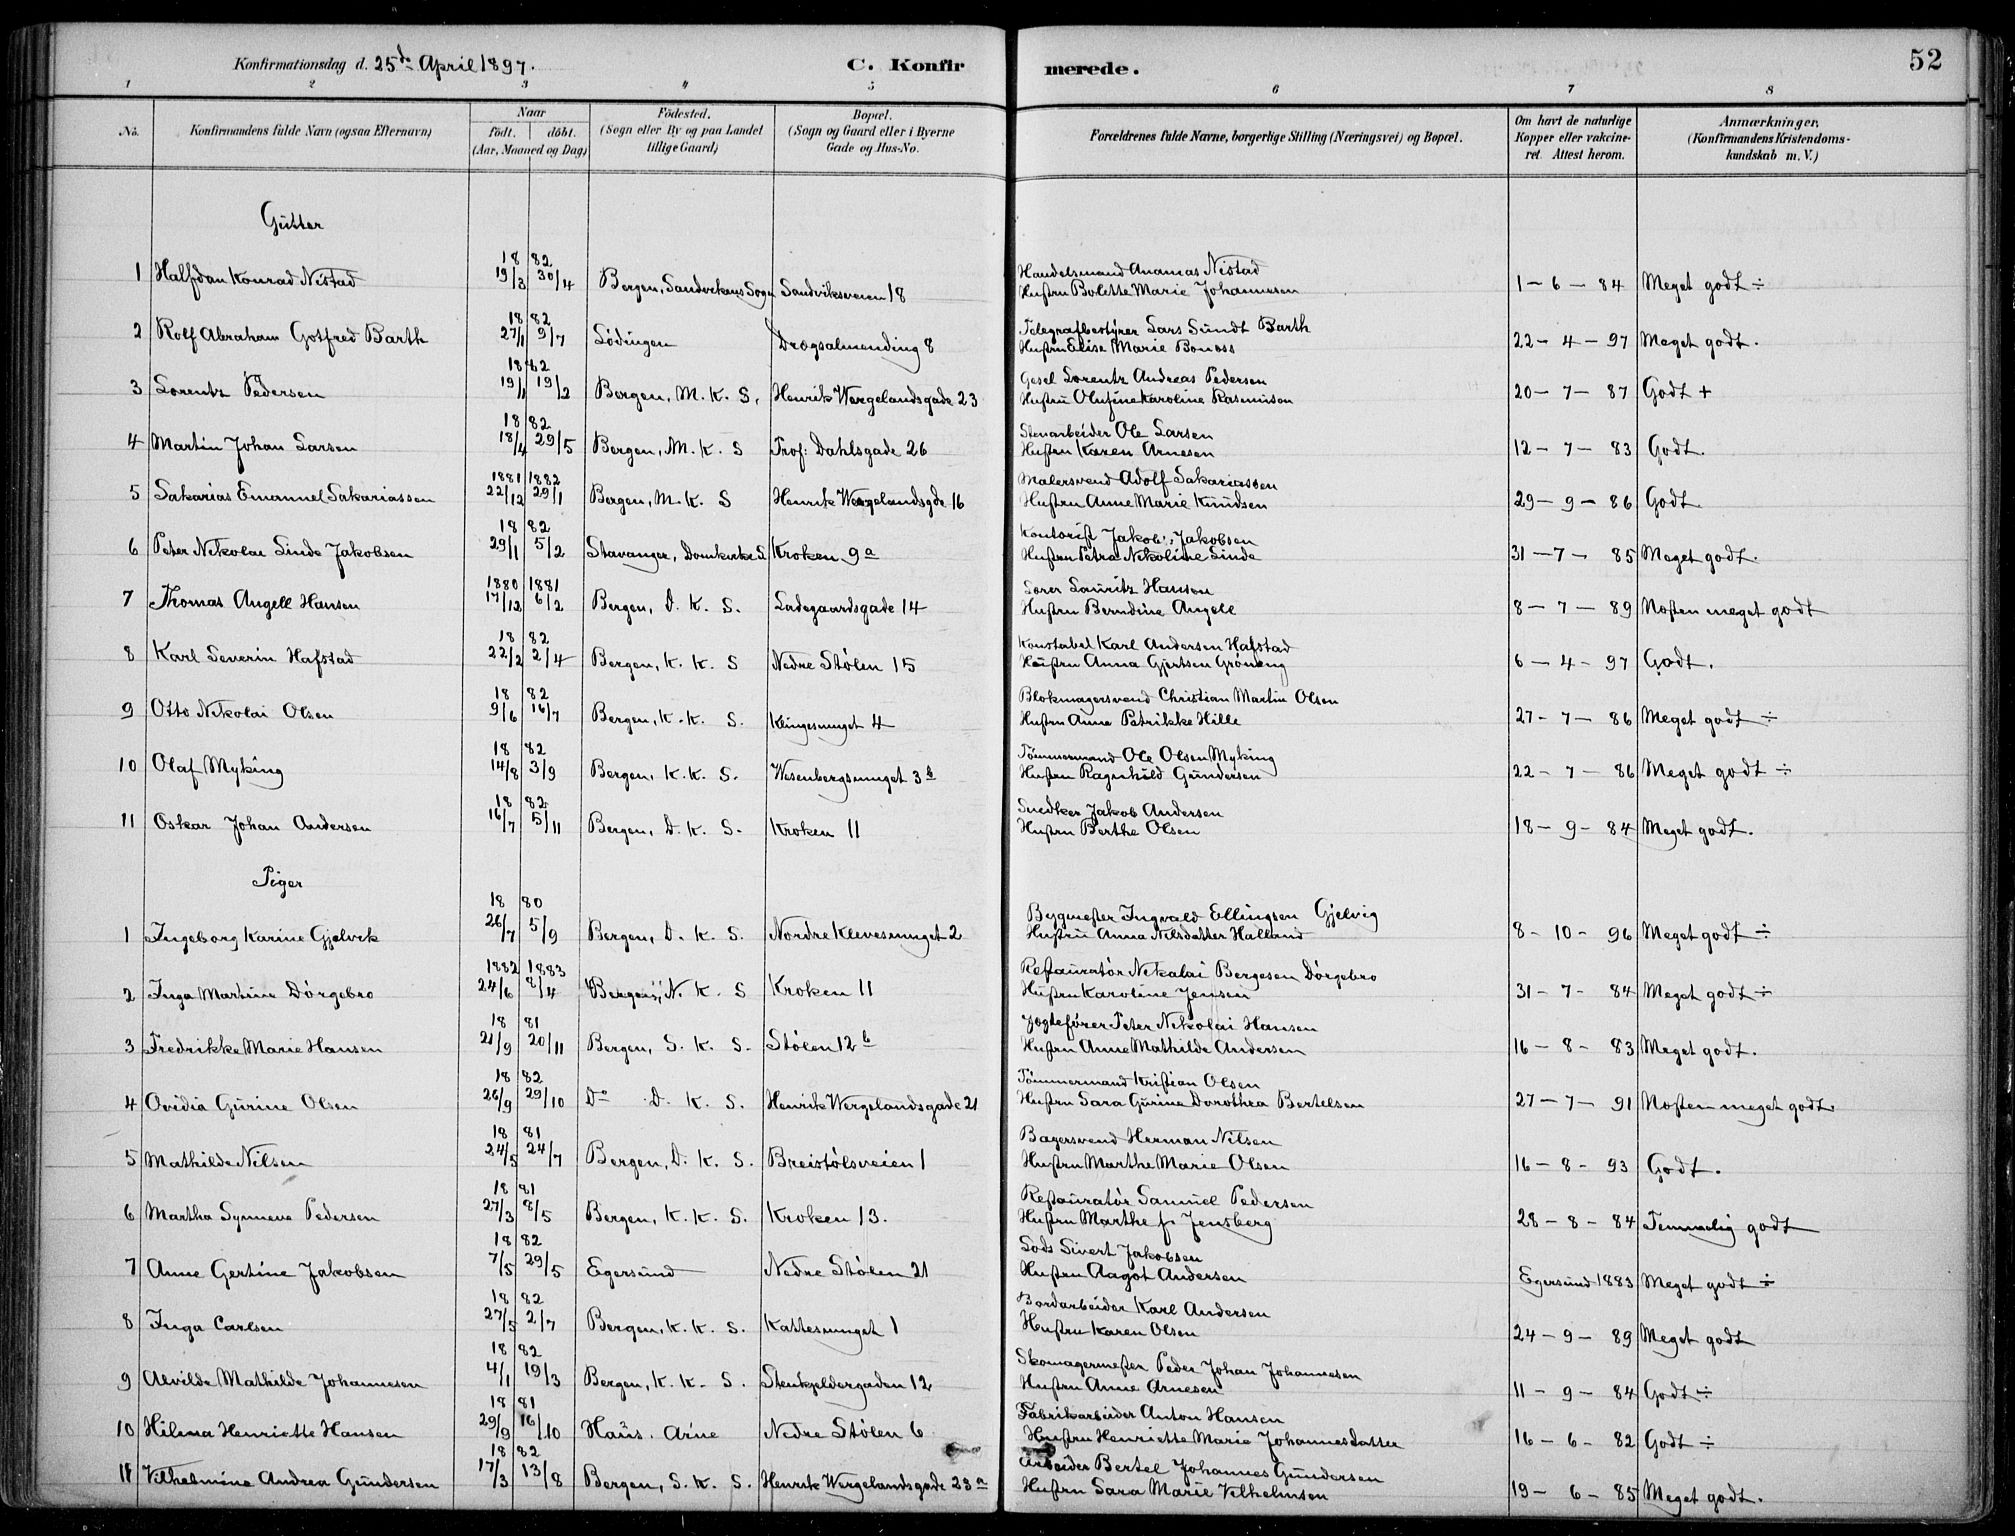 52
Konfirmationsdag d. 25de April 1897. C. Konfirmerede.
1 2 3 4 5 6 7 8
No. Konfirmandens fulde Navn (ogsaa Efternavn) Naar født. døbt. (Aar, Maaned og Dag) Fødested. (Sogn eller By og paa Landet tillige Gaard) Bopæl. (Sogn og Gaard eller i Byerne Gade og Hus-No. Forældrenes fulde Navne, borgerlige Stilling (Næringsvei) og Bopæl. Om havt de naturlige Kopper eller vakcineret. Attest herom. Anmærkninger, (Konfirmandens Kristendomskundskab m. V.)
Gutter
1 Halfdan Konrad Nistad 1882 19/3 30/4 Bergen, Sandvikens Sogn Sandviksveien 18 Handelsmand Ananias Nistad Hustru Bolette Marie Johannesen 1-6-84 Meget godt ÷
2 Rolf Abraham Gotfred Barth 1882 27/1 9/7 Lødingen Drægsalmending 8 Telegrafbestyrer Lars Sundt Barth Hustru Elise Marie 22-4-97 Meget godt.
3 Lorentz Pedersen 1882 19/1 19/2 Bergen, M. K. S. Henrik Wergelandsgade 23 Gesel Lorentz Andreas Pedersen Hustru Olufine Karoline Rasmussen 20-7-87 Godt +
4 Martin Johan Larsen 1882 18/4 29/5 Bergen, M. K. S Prof: Dahlsgade 26 Stenarbeider Ole Larsen Hustru Karen Arnesen 12-7-83 Godt.
5 Sakarias Emanuel Sakariassen 1881 1882 22/12 29/1 Bergen, M. K. S Henrik Wergelandsgde 16 Malersvend Adolf Sakariassen Hustru Anne Marie Knudsen 29-9-86 Godt.
6 Peter Nikolai Linde Jakobsen 1882 29/1 5/2 Stavanger, Domkirke S Kroken 9a Kontorist Jakob Jakobsen Hustru Petra Nikoline Linde 31-7-85 Meget godt.
7 Thomas Angell Hansen 1880 1881 17/12 6/2 Bergen, D. K. S. Ladegaardsgade 14 Lorer Lauritz Hansen Hustru Berndine Angell 8-7-89 Næsten meget godt
8 Karl Severin Hafstad 1882 22/2 2/4 Bergen, K. K. S Nedre Stølen 15 Konstabel Karl Andersen Hafstad Hustru Anna Gjertsen Grøneng 6-4-97 Godt.
9 Otto Nikolai Olsen 1882 9/6 16/7 Bergen, K. K. S. Klingesmuget 4 Blokmagersvend Christian Martin Olsen Hustru Anne Petrikke Hille 27-7-86 Meget godt ÷
10 Olaf Myking 1882 14/8 3/9 Bergen, K. K. S. Wesenbergsmuget 3b Tømmermand Ole Olsen Myking Hustru Ragnhild Gundersen 22-7-86 Meget godt ÷
11 Oskar Johan Andersen 1882 16/7 5/11 Bergen, D. K. S. Kroken 11 Snedker Jakob Andersen Hustru Berthe Olsen 18-9-84 Meget godt.
Piger
1 Ingeborg Karine Gjelvik 1880 26/7 5/9 Bergen, D. K. S. Nordre Klevesmuget 2 Bygmester Ingvald Ellingsen Gjelvig Hustru Anna Nilsdatter Halland 8-10-96 Meget godt ÷
2 Inga Martine Dørgebro 1882 1883 24/6 8/4 Bergen, N. K. S Kroken 11 Restauratør Nikolai Bergesen Dørgebro Hustru Karoline Jensen 31-7-84 Meget godt ÷
3 Fredrikke Marie Hansen 1881 21/9 20/11 Bergen, S. K. S. Stølen 12b Jogtefører Peter Nikolai Hansen Hustru Anne Mathilde Andersen 16-8-83 Meget godt.
4 Ovidia Gurine Olsen 1882 26/9 29/10 Do D. K. S. Henrik Wergelandsgade 21 Tømmermand Kristian Olsen Hustru Sara Gurine Dorothea Bertelsen 27-7-91 Næsten meget godt.
5 Mathilde Nilsen 1881 24/5 24/7 Bergen, D. K. S. Breistølsveien 1 Bagersvend Herman Nilsen Hustru Marthe Marie Olsen 16-8-93 Godt.
6 Martha Synneve Pedersen 1881 27/3 8/5 Bergen, K. K. S. Kroken 13. Restauratør Samuel Pedersen Hustru Marthe f. Jensberg 28-8-84 Temmelig godt
7 Anne Gertine Jakobsen 1882 7/5 29/5 Egersund Nedre Stølen 21 Lods Sivert Jakobsen Hustru Aagot Andersen Egersund 1883 Meget godt ÷
8 Inga Carlsen 1882 27/5 2/7 Bergen, K. K. S. Kattesmuget 1 Bordarbeider Karl Andersen Hustru Karen Olsen 24-9-89 Meget godt
9 Alvilde Mathilde Johannesen 1882 4/1 19/3 Bergen, K. K. S. Stenkjeldergaden 12 Skomagermester Peder Johan Johannesen Hustru Anne Arnesen 11-9-84 Godt ÷
10 Hilma Henriette Hansen 1881 29/9 16/10 Haus. Arne Nedre Stølen 6 Fabrikarbeider Anton Hansen Hustru Henriette Marie Johannesdatter 16-6-82 Godt ÷
11 Vilhelmine Andrea Gundersen 1882 17/3 13/8 Bergen, S. K. S. Henrik Wergelandsgade 23a Arbeider Bertel Johannes Gundersen Hustru Sara Marie Vilhelmsen 19-6-85 Meget godt.